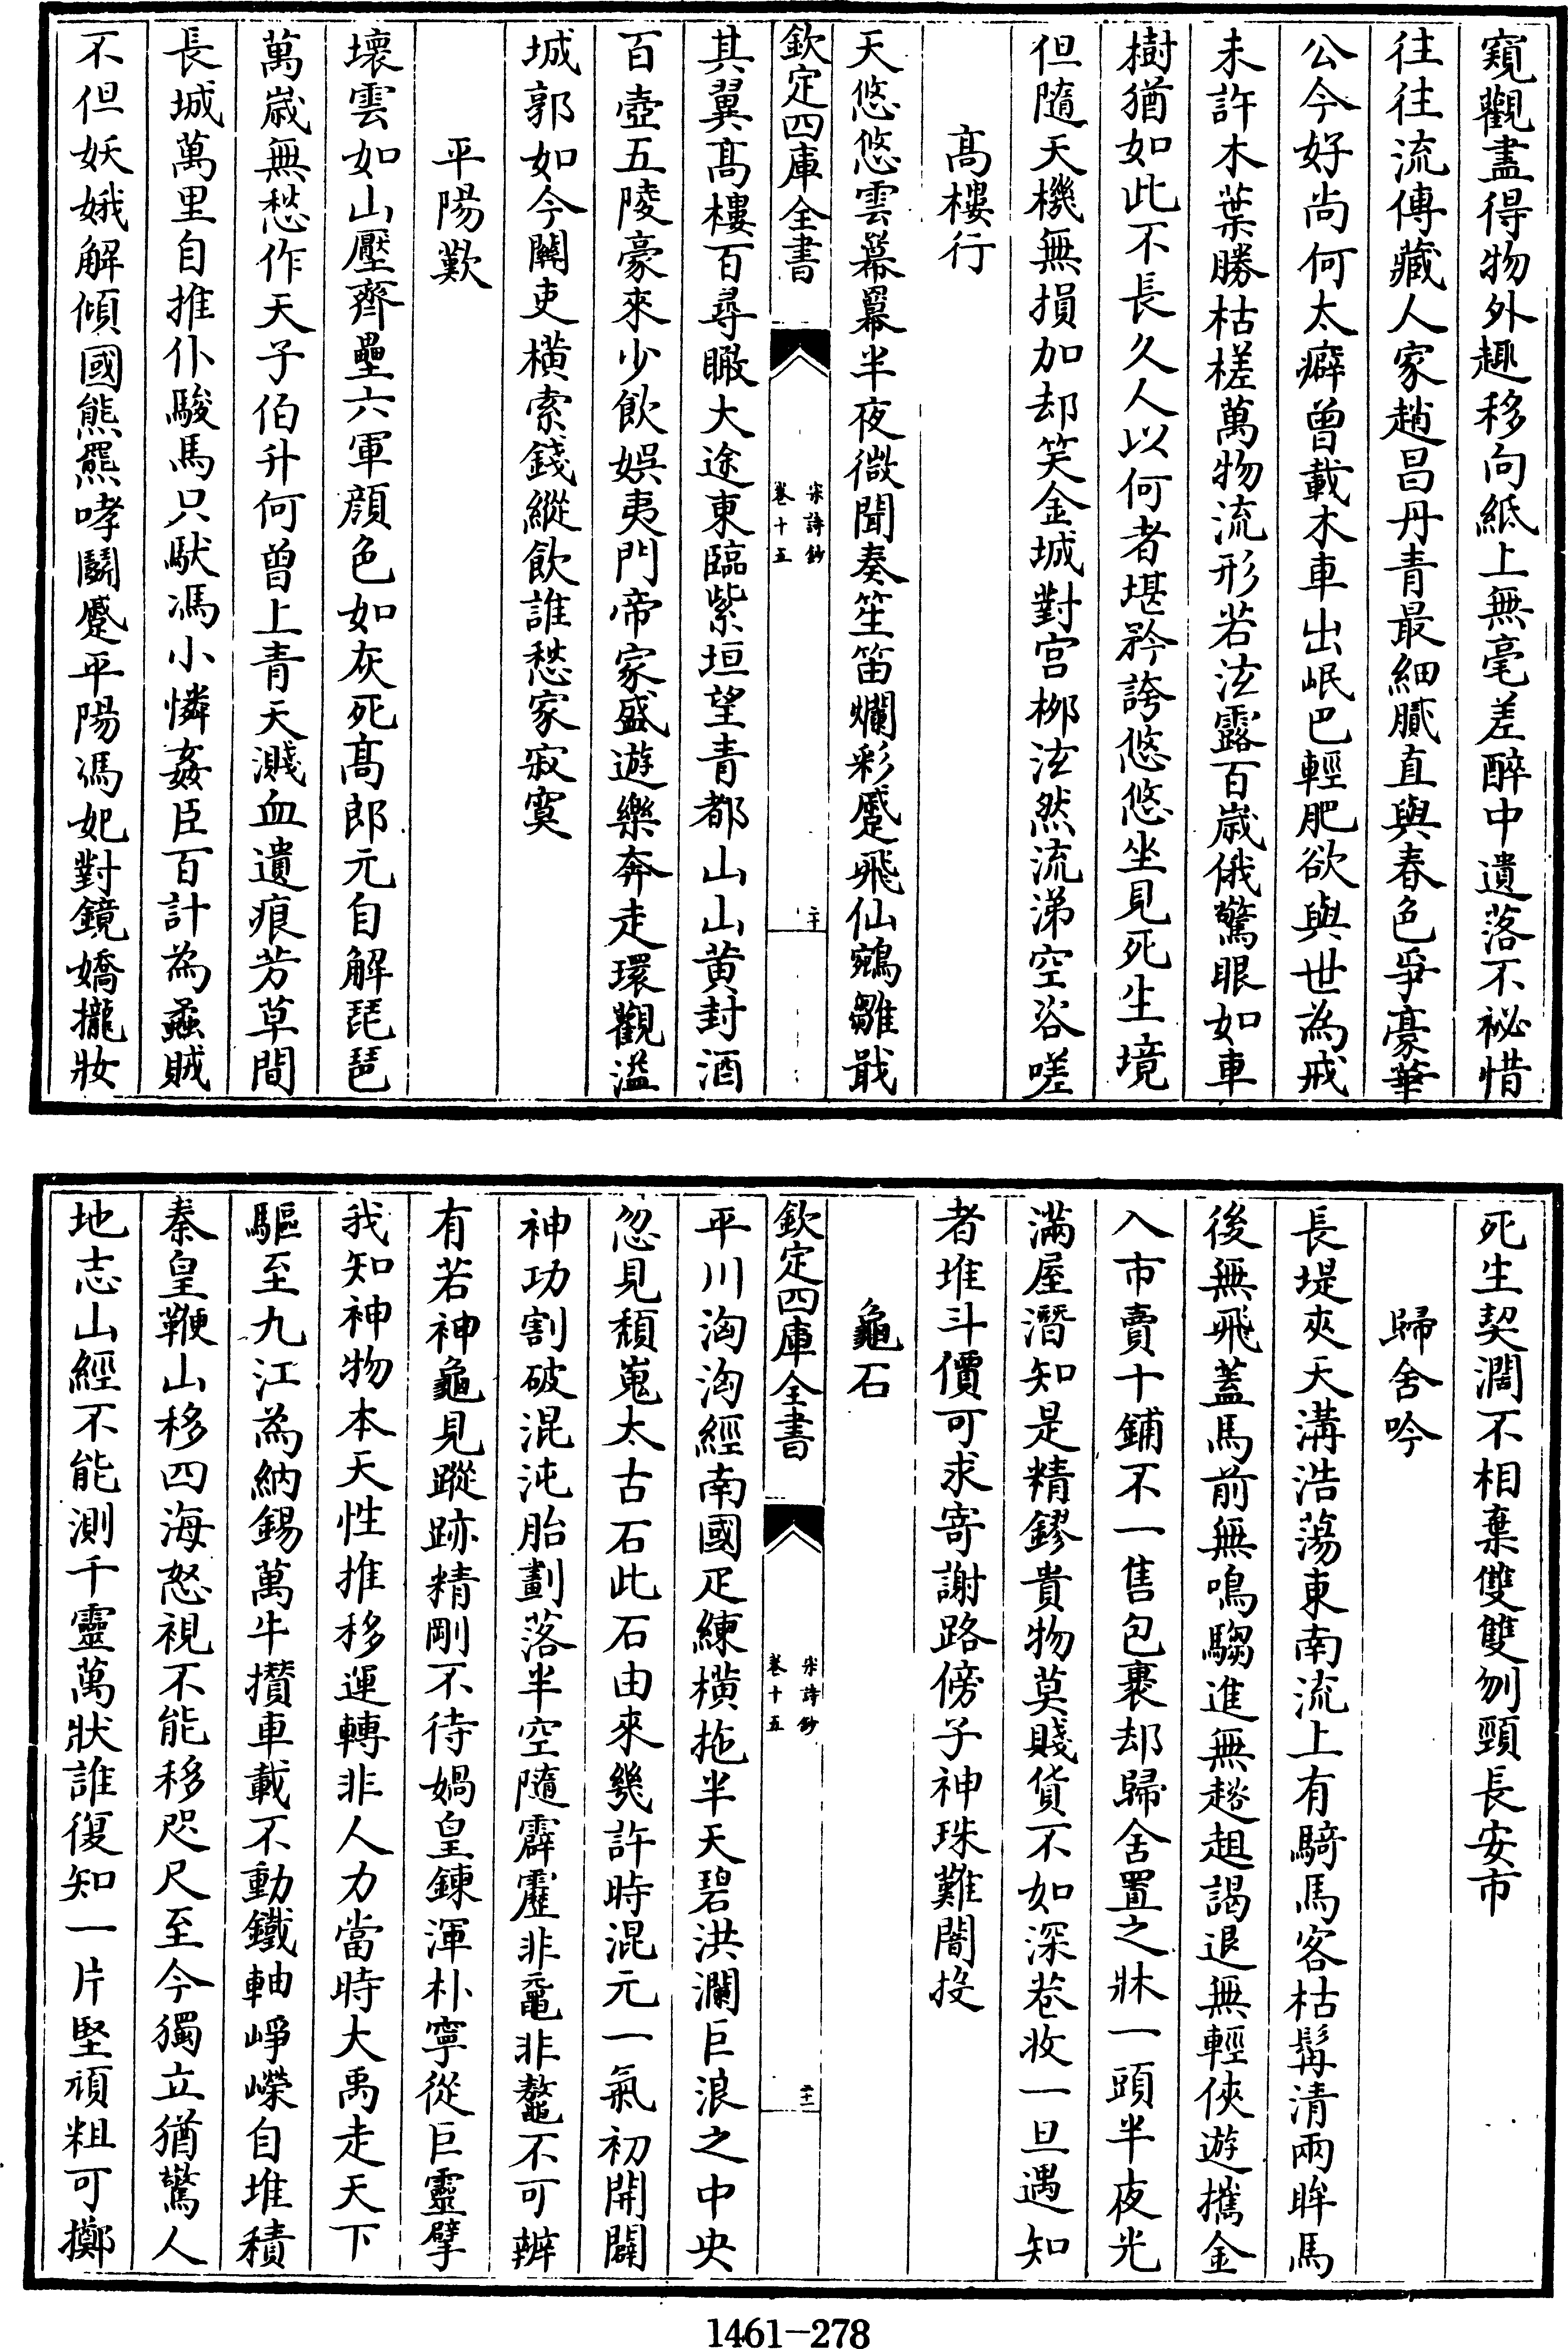 窺觀盡得物外趣移向紙上無毫差醉中遺落不祕惜
往往流傳藏人家趙昌丹青最細膩直與春色爭豪華
公今好尚何太癖曾載木車出岷巴輕肥欲與世為戒
未許木葉勝枯槎萬物流形若泫露百歲俄驚眼如車
樹猶如此不長久人以何者堪矜誇悠悠坐見死生境
但隨天機無損加却笑金城對宮桞泫然流涕空咨嗟
高樓行
天悠悠雲冪冪半夜微聞奏笙笛爛彩蹙飛仙鵷雛戢
欽定四庫全書
宋詩鈔
卷十五
二十
其翼髙樓百尋瞰大途東臨紫垣望青都山山黄封酒
百壺五陵豪來少飲娛夷門帝家盛遊樂奔走環觀溢
城郭如今闗吏橫索錢縱飲誰愁家寂寞
平陽歎
壞雲如山壓齊壘六軍顔色如灰死髙郎元自解琵琶
萬歲無愁作天子伯升何曾上青天濺血遺痕芳草間
長城萬里自推仆駿馬只馱馮小憐姦臣百計為蟊賊
不但妖娥解傾國熊羆哮鬭蹙平陽馮妃對鏡嬌攏妝
死生契濶不相棄雙雙刎頸長安市
歸舍吟
長堤夾天溝浩蕩東南流上有騎馬客枯髯清兩眸馬
後無飛蓋馬前無鳴騶進無趦趄謁退無輕俠遊攜金
入市賣十鋪不一售包裹却歸舍置之牀一頭半夜光
滿屋潛知是精鏐貴物莫賤貨不如深巷收一旦遇知
者堆斗價可求寄謝路傍子神珠難闇投
龜石
欽定四庫全書
宋詩鈔
卷十五
二十一
平川洶洶經南國疋練橫拖半天碧洪瀾巨浪之中央
忽見頹嵬太古石此石由來幾許時混元一氣初開闢
神功割破混沌胎劃落半空隨霹靂非黿非鼇不可辨
有若神龜見蹤跡精剛不待媧皇鍊渾朴寧從巨靈擘
我知神物本天性推移運轉非人力當時大禹走天下
驅至九江為納錫萬牛攢車載不動鐵軸崢嶸自堆積
秦皇鞭山移四海怒視不能移咫尺至今獨立猶驚人
地志山經不能測千靈萬狀誰復知一片堅頑粗可擲
1461-278